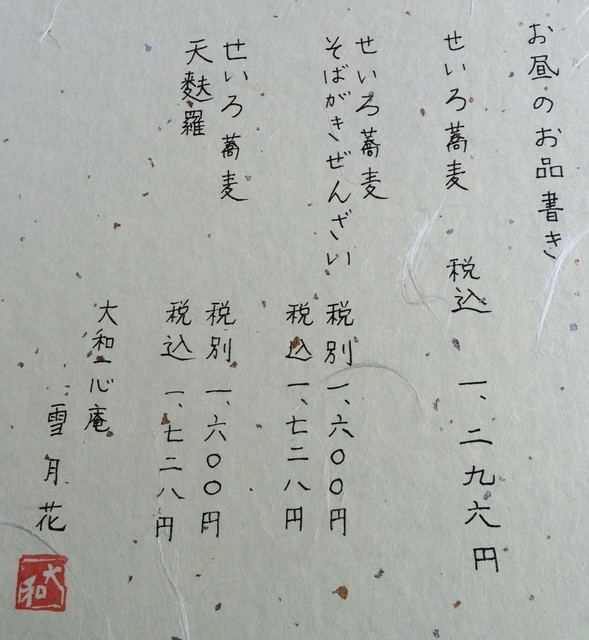 お昼のお品書き
せいろ蕎麦 税込 一、二九六円
せいろ蕎麦
そばがきぜんざい
税別 一、六〇〇円
税込 一、七二八円
せいろ蕎麦
天麩羅
税別 一、六〇〇円
税込 一、七二八円
大和一心庵
雪月花
大和